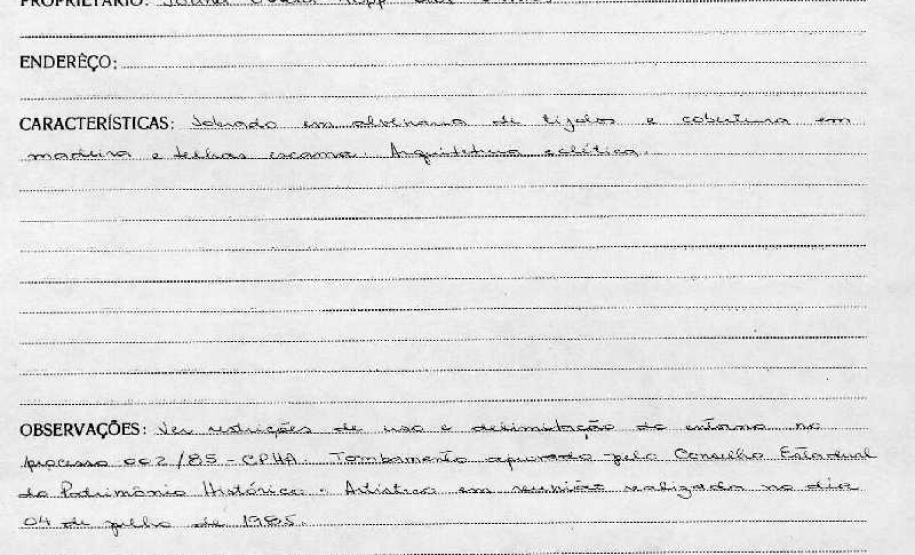 PROPRIETÁRIO:
ENDERÊÇO:
CARACTERÍSTICAS: Sobrado em alvenaria de tijolos e cobertura em
madeira e telhas escama. Arquitetura eclética.
OBSERVAÇÕES: Ver restrições de uso e delimitação do entorno no
processo 002/85 - CPHA. Tombamento aprovado pelo Conselho Estadual
do Patrimônio Histórico e Artístico em reunião realizada no dia
04 de julho de 1985.